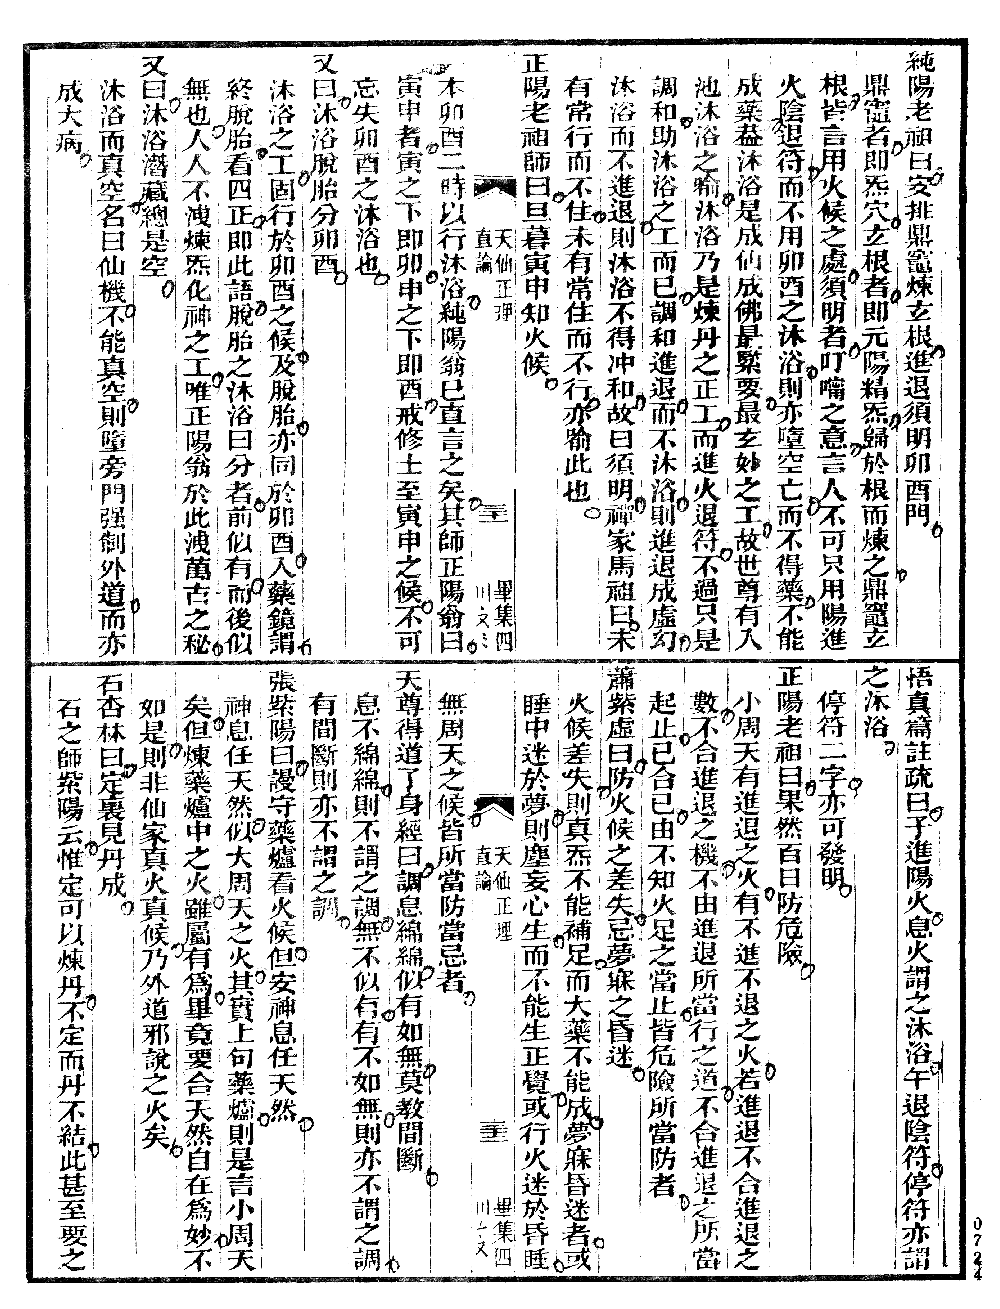 純陽老祖曰安排鼎竈煉玄根進退須明卯酉門
鼎竈者即炁穴玄根者即元陽精炁歸於根而煉之鼎竈玄
根皆言用火候之處須明者叮嚀之意言人不可只用陽進
火陰退符而不用卯酉之沐浴則亦墮空亡而不得藥不能
成藥葢沐浴是成仙成佛最緊要最玄妙之工故世尊有入
池沐浴之喻沐浴乃是煉丹之正工而進火退符不過只是
調和助沐浴之工而已調和進退而不沐浴則進退成虛幻
沐浴而不進退則沐浴不得冲和故曰須明禪家馬祖曰未
有常行而不住未有常住而不行亦喻此也
正陽老祖師曰旦暮寅申知火候
天仙正理
直論
三十
畢集四
本卯酉二時以行沐浴純陽翁已直言之矣其師正陽翁曰
寅申者寅之下即卯申之下即酉戒修士至寅申之候不可
忘失卯酉之沐浴也
又曰沐浴脫胎分卯酉
沐浴之工固行於卯酉之候及脫胎亦同於卯酉入藥鏡謂
終脫胎看四正即此語脫胎之沐浴曰分者前似有而後似
無也人人不洩煉炁化神之工唯正陽翁於此洩萬古之秘
又曰沐浴潛藏總是空
沐浴而真空名曰仙機不能真空則墮旁門强制外道而亦
成大病
悟真篇註疏曰子進陽火息火謂之沐浴午退陰符停符亦謂
之沐浴
停符二字亦可發明
正陽老祖曰果然百日防危險
小周天有進退之火有不進不退之火若進退不合進退之
數不合進退之機不由進退所當行之道不合進退之所當
起止已合已由不知火足之當止皆危險所當防者
蕭紫虛曰防火候之差失忌夢寐之昏迷
火候差失則真炁不能補足而大藥不能成夢寐昏迷者或
睡中迷於夢則塵妄心生而不能生正覺或行火迷於昏睡
天仙正理
直論
三十
畢集四
無周天之候皆所當防當忌者
天尊得道了身經曰調息綿綿似有如無莫教間斷
息不綿綿則不謂之調無不似有有不如無則亦不謂之調
有間斷則亦不謂之調
張紫陽曰謾守藥爐看火候但安神息任天然
神息任天然似大周天之火其實上句藥爐則是言小周天
矣但煉藥爐中之火雖屬有爲畢竟要合天然自在爲妙不
如是則非仙家真火真候乃外道邪說之火矣
石杏林曰定裏見丹成
石之師紫陽云惟定可以煉丹不定而丹不結此甚至要之
0724